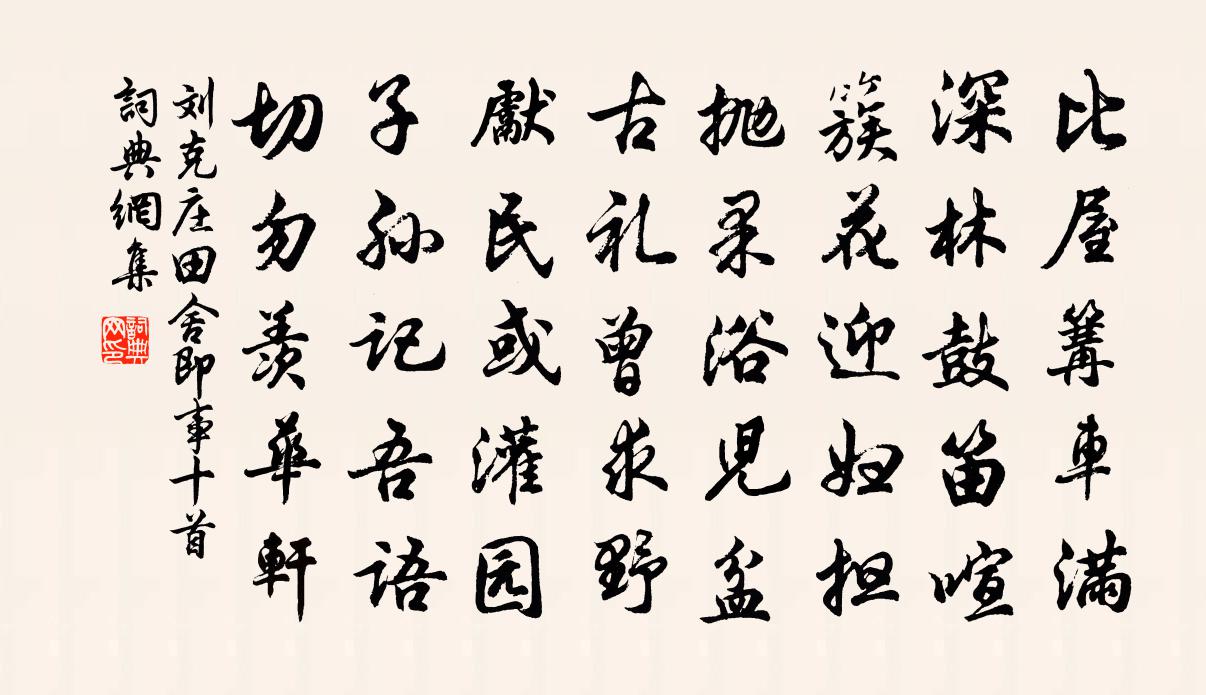 比屋篝車滿
深林鼓笛喧
簇花迎妇担
抛果浴児盆
古礼曾求野
獻民或灌园
子孙記吾語
切勿羡華軒
刘克庄田舍即事十首
詞典網集
詞典网印